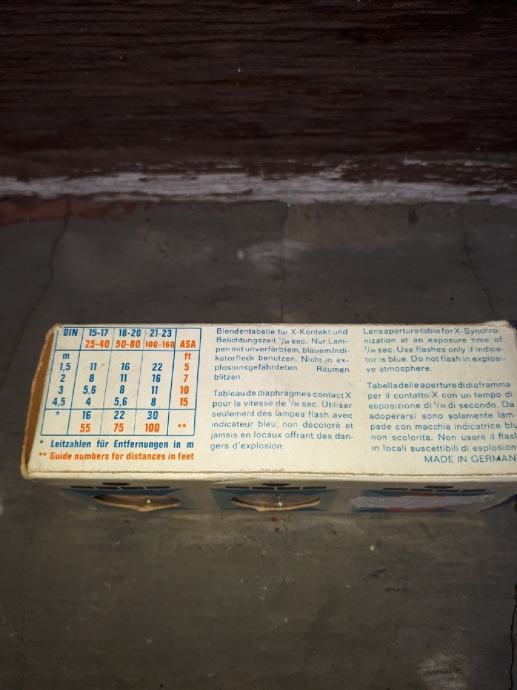 DIN 15-17 18-20 21-23
25-40 50-80 100-160 ASA
m ft
1,5 11 16 22 5
2 8 11 16 7
3 5,6 8 11 10
4,5 4 5,6 8 15
* 16 22 30
55 75 100 **
* Leitzahlen für Entfernungen in m
** Guide numbers for distances in feet
Blendentabelle für X-Kontakt und
Belichtungszeit 1/30 sec. Nur Lam-
pen mit unverfärbtem, blauem Indi-
katorfleck benutzen. Nicht in ex-
plosionsgefährdeten Räumen
blitzen.
Tableau de diaphragmes contact X
pour la vitesse de 1/30 sec. Utiliser
seulement des lampes flash avec
indicateur bleu, non décoloré et
jamais en locaux offrant des dan-
gers d'explosion.
Lens aperture table for X-Synchro-
nization at an exposure time of
1/30 sec. Use flashes only if indica-
tor is blue. Do not flash in explosi-
ve atmosphere.
Tabella delle aperture di diaframma
per il contatto X con un tempo di
esposizione di 1/30 di secondo. Da
adoperarsi sono solamente lam-
pade con macchia indicatrice blu
non scolorita. Non usare il flash
in locali suscettibili di esplosion
MADE IN GERMAN